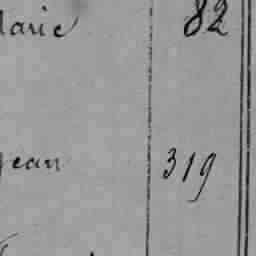 Marie 82
Jean 319